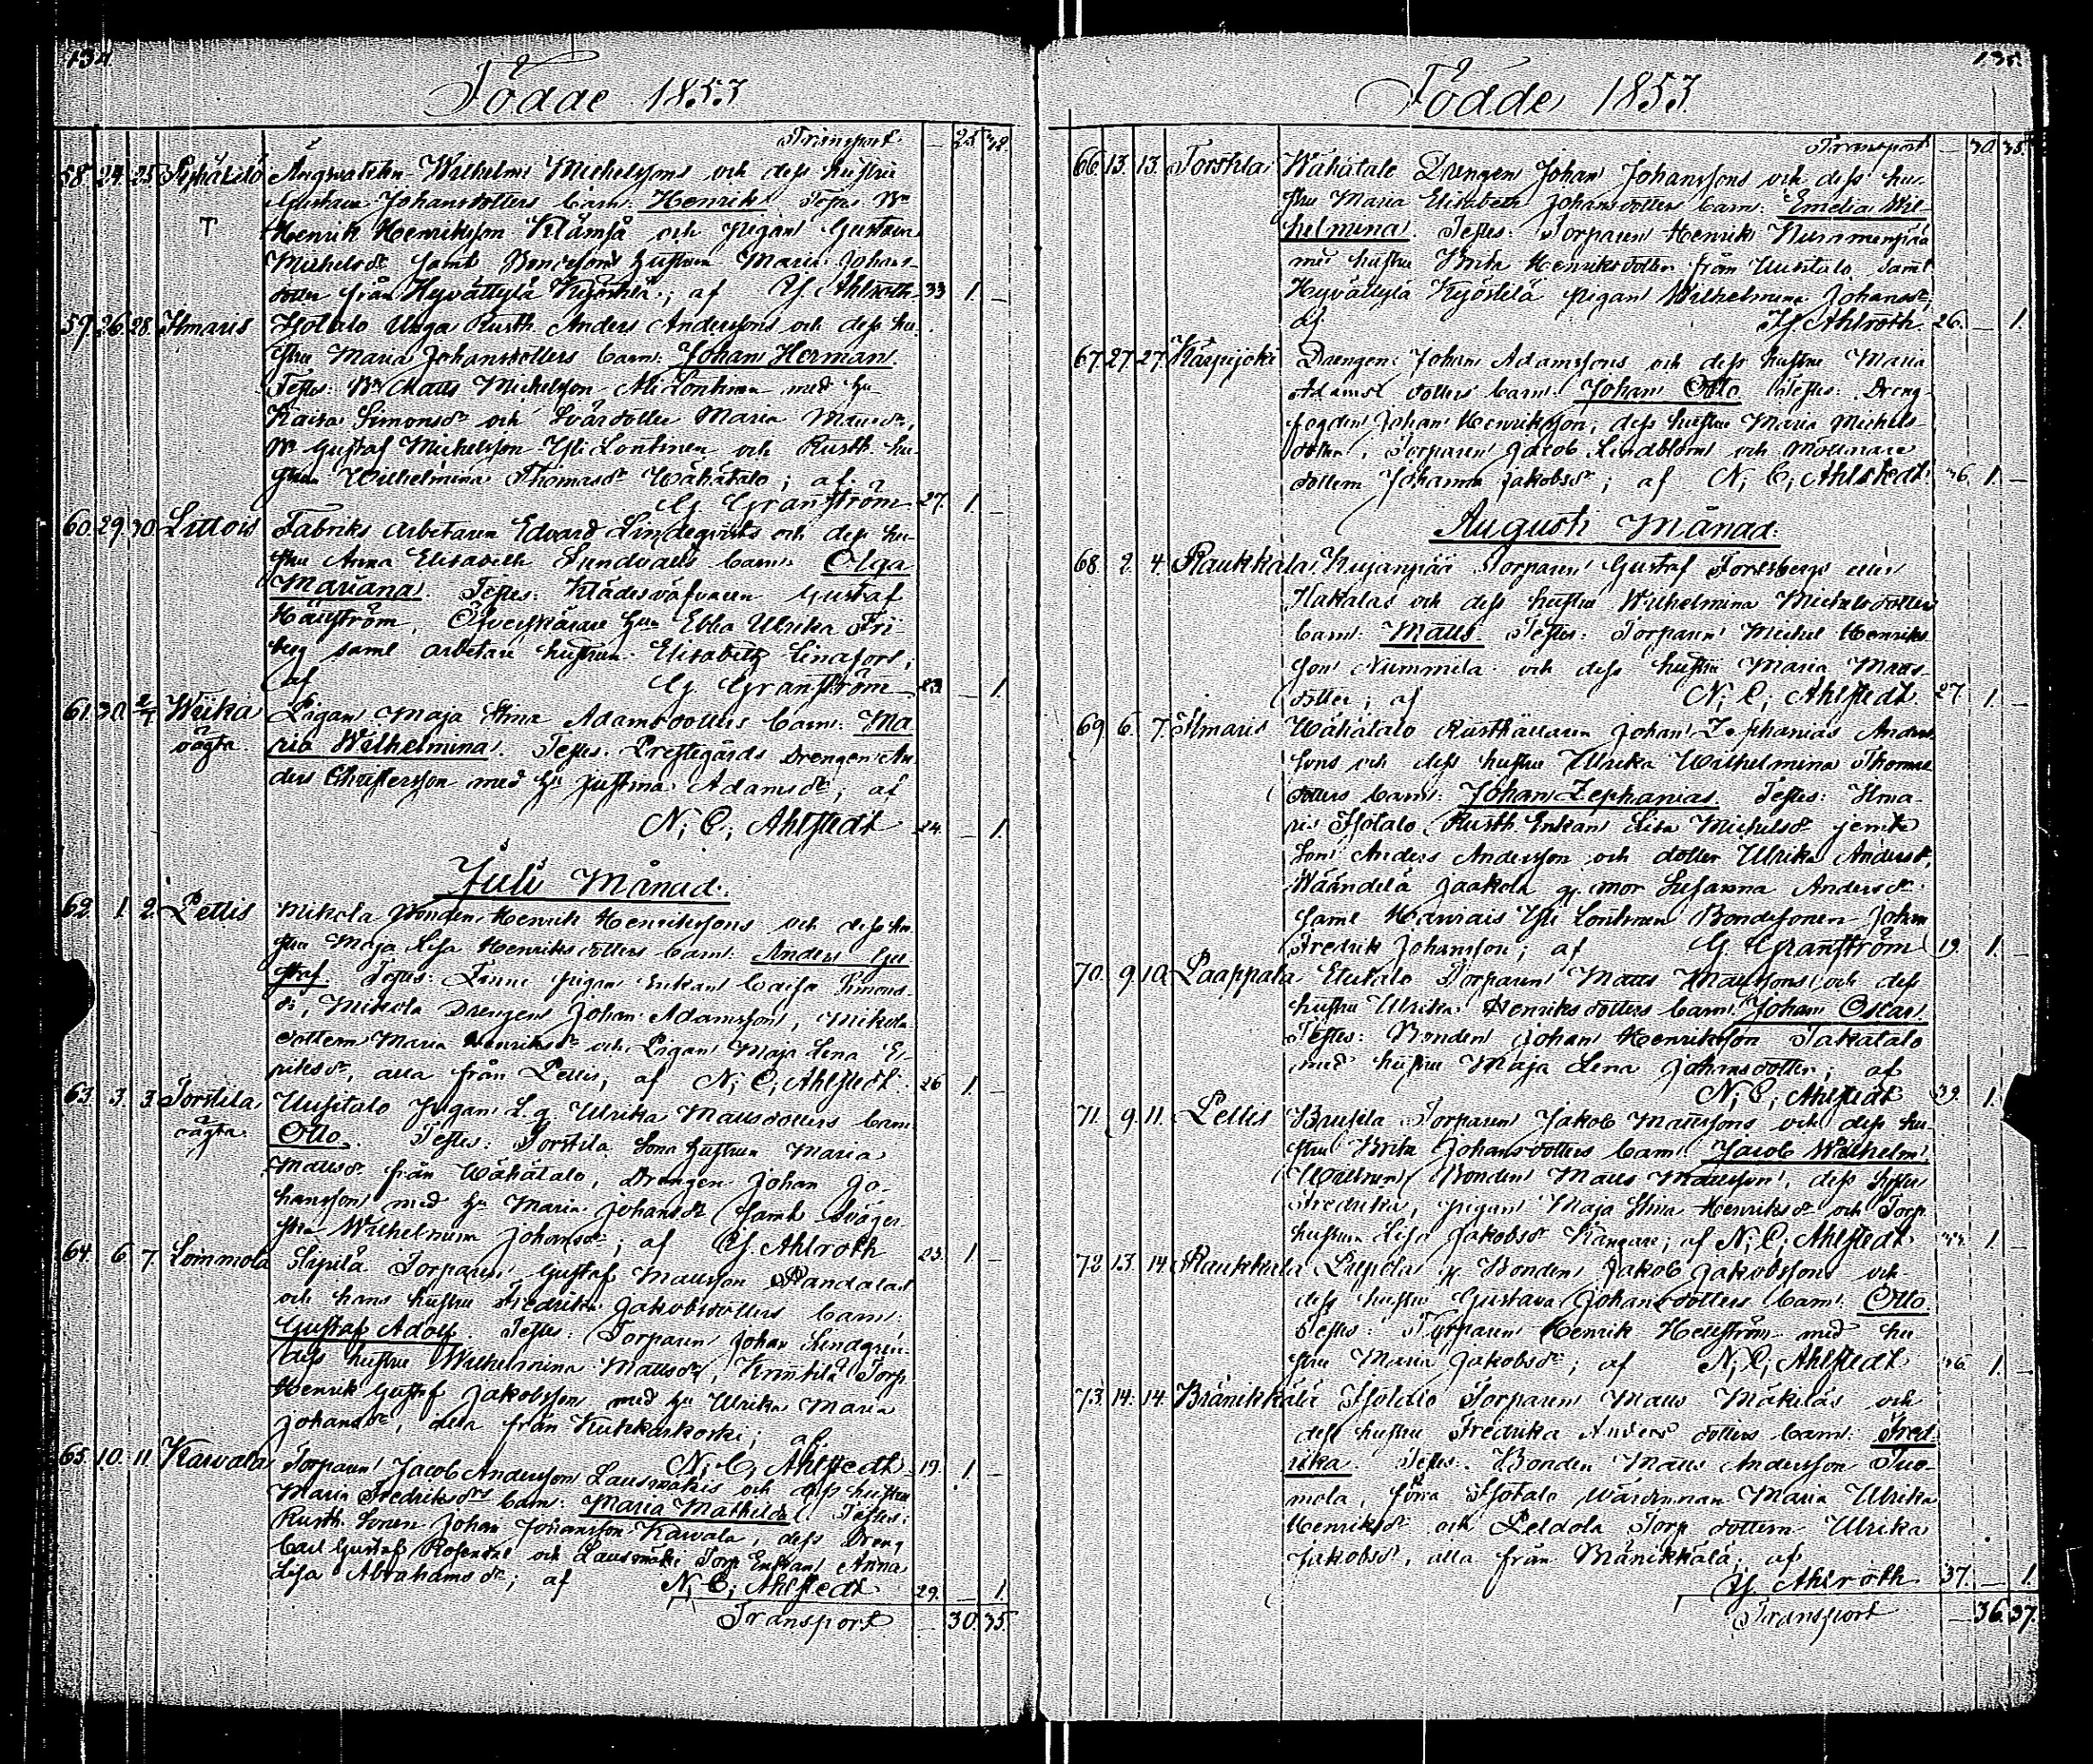 134
Födde 1853
Transport — 25 32.
58. 24. 25. Wilhelm Michelssons och dess hustru
Gustava Johansdotters barn: Henrik. Testes: Bn
T Henrik Henriksson Klämsä och pigan Gustava
Michelsdr samt Bondesons hustrun Maria Johans-
dotter från Hyvättylä Kyöstilä; af G. Ahlroth 33 1. —
59. 26. 28. Ilmaris Isotalo Unga Rusth. Anders Anderssons och dess hu-
stru Maria Johansdotters barn: Johan Herman.
Testes: Bn Matts Michelsson Ali Lontinen med hu
Kaisa Simonsdr och Svärdotter Maria Mattsdr,
Bn Gustaf Michelsson Yli Lontinen och Rusth. hu-
strun Wilhelmina Thomasdr Wähätalo; af
G. Granström 27. 1 —
60. 29. 30. Littois Fabriks Arbetaren Edvard Lindeqvists och dess hu-
stru Anna Elisabeth Sundvalls barn: Olga
Mariana. Testes: Klädesväfvaren Gustaf
Hällström, Öfverskärare hun Ebba Ulrika Fri-
berg samt arbetare hustrun Elisabeth Linafors;
af G. Granström 23. — 1.
61. 30. 2/7 Wiika Pigan Maja Stina Adamsdotters barn: Ma-
oägta. ria Wilhelmina. Testes: Prestegårds Drengen An-
ders Christersson med hu Justina Adamsdr; af
N. C. Ahlstedt 24. — 1.
Juli Månad.
62. 1. 2. Pettis Mikola Bonden Henrik Henrikssons och dess hu-
stru Maja Lisa Henriksdotters barn: Anders Gu-
staf. Testes: pigan Enkan Caisa Simons-
dr, Mikola Drengen Johan Adamsson, Mikola
dottern Maria Henriksdr och Pigan Maja Lena E-
riksdr, alla från Pettis; af N. C. Ahlstedt. 26 1. —
63. 3. 3. Torstila Uusitalo Pigan L. q. Ulrika Mattsdotters barn
oägta. Otto. Testes: Torstila Sona hustrun Maria
Mattsdr från Wähätalo, Drengen Johan Jo-
hansson med hu Maria Johansdr samt Sväger-
ska Wilhelmina Johansdr; af G. Ahlroth 23. 1. —
64. 6. 7. Loimmola Sipilä Torparen Gustaf Mattsson Randalas
och hans hustru Fredrika Jakobsdotters barn:
Gustaf Adolf. Testes: Torparen Johan Lindgren
dess hustru Wilhelmina Mattsdr, Torp.
Henrik Gustaf Jakobsson med hu Ulrika Maria
Johansdr, alla från Kukkarkoski; af
N. C. Ahlstedt. 19. 1. —
65. 10. 11. Kawala Torparen Jacob Andersson Lausmäkis och dess hustru
Maria Fredriksdrs barn: Maria Mathilda. Testes:
Rusth. Sonen Johan Johansson Kawala, dess Dreng
Carl Gustaf Rosendal och Lausmäki Torp. Enkan Anna
Lisa Abrahamsdr; af N. C. Ahlstedt 29. — 1.
Transport — 30. 35.
135.
Födde 1853
Transport — 30. 35.
66. 13. 13. Torstila Wähätalo Drengen Johan Johanssons och dess hu-
stru Maria Elisabeth Johansdotters barn: Emelia Wil-
helmina. Testes: Torparen Henrik Nummenpää
med hustru Brita Henriksdotter från Uusitalo samt
Hyvättylä Kyöstilä pigan Wilhelmina Johansdr;
af G. Ahlroth 26. — 1.
67. 27. 27. Karpijoki Drengen Johan Adamssons och dess hustru Maria
Adams dotters barn: Johan Otto. Testes: Dreng-
fogden Johan Henriksson, dess hustru Maria Michels-
dotter, Torparen Jacob Lindblom och Mölnare
dottern Johanna Jakobsdr; af N. C. Ahlstedt 36. 1. —
Augusti Månad.
68. 2. 4. Raukkala Kujanpää Torparen Gustaf Forssbergs eller
Hakalas och dess hustru Wilhelmina Michelsdotters
barn: Matts. Testes: Torparen Michel Henriks-
son Nummila och dess hustru Maria Matts-
dotter; af N. C. Ahlstedt. 27 1. —
69. 6. 7. Ilmaris Wähätalo Rusthållaren Johan Zephanias Anders-
sons och dess hustru Ulrika Wilhelmina Thomas
dotters barn: Johan Zephanias. Testes: Ilma-
ris Isotalo Rusth. Enkan Lisa Michelsdr jemte
Son Anders Andersson och dotter Ulrika Andersdr,
Wäändelä Jaakola g. mor Susanna Andersdr
samt Yli Lontinen Bondesonen Johan
Fredrik Johansson; af G. Granström 19. 1. —
70. 9. 10. Paappala Torparen Matts Mattssons och dess
hustru Ulrika Henriksdotters barn: Johan Oscar.
Testes: Bonden Johan Henriksson Takatalo
med hustru Maja Lena Johansdotter; af
N. C. Ahlstedt 39. 1. —
71. 9. 11. Pettis Brusila Torparen Jakob Mattssons och dess hu-
stru Brita Johansdotters barn: Jacob Wilhelm.
Bonden Matts Mattsson, dess syster
Fredrika, pigan Maja Stina Henriksdr och Torp.
hustrun Lisa Jakobsdr Kangare; af N. C. Ahlstedt 1. —
72. 13. 14. Raukkala Bonden Jakob Jakobssons och
dess hustru Gustava Johansdotters barn: Otto.
Testes: Torparen Henrik Hellström med hu-
stru Maria Jakobsdr; af N. C. Ahlstedt 36. 1. —
73. 14. 14. Bränikkälä Isotalo Torparen Matts Mäkeläs och
dess hustru Fredrika Anders dotters barn: Fred-
rika. Testes: Bonden Matts Andersson Tuo-
mola, förra Isotalo Wärdinnan Maria Ulrika
Henriksdr och Peldola Torp. dottern Ulrika
Jakobsdr, alla från Bränikkälä; af
G. Ahlroth 37. — 1.
Transport — 36. 37.